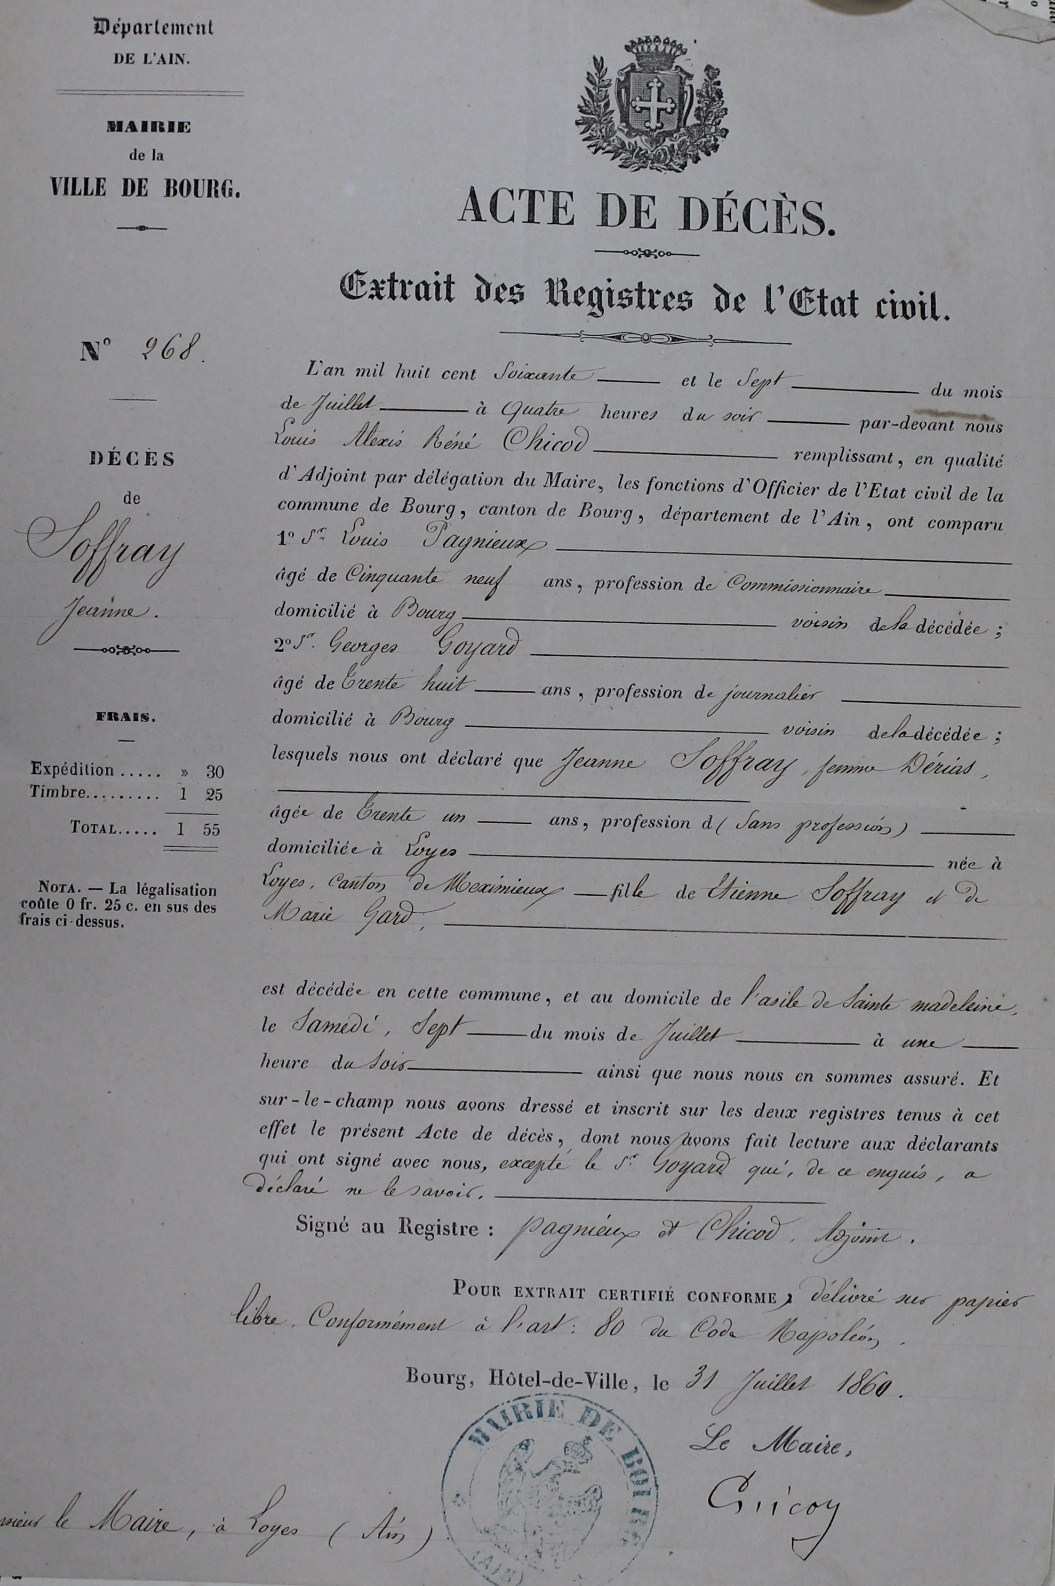 Département
DE L'AIN.
MAIRIE
de la
VILLE DE BOURG.
ACTE DE DÉCÈS.
Extrait des Registres de l'Etat civil.
N° 268.
DÉCÈS
de
Soffray
Jeanne.
FRAIS.
Expédition ..... » 30
Timbre......... 1 25
TOTAL..... 1 55
NOTA. — La légalisation
coûte 0 fr. 25 c. en sus des
frais ci-dessus.
L'an mil huit cent Soixante et le Sept du mois
de Juillet à Quatre heures du soir par-devant nous
Louis Alexis Réné Chicod remplissant, en qualité
d'Adjoint par délégation du Maire, les fonctions d'Officier de l'Etat civil de la
commune de Bourg, canton de Bourg, département de l'Ain, ont comparu
1° Sr. Louis Pagnieux
âgé de Cinquante neuf ans, profession de Commissionnaire
domicilié à Bourg voisin de la décédée;
2° Sr. Georges Goyard
âgé de Trente huit ans, profession de journalier
domicilié à Bourg voisin de la décédée;
lesquels nous ont déclaré que Jeanne Soffray, femme Dérias,
âgée de Trente un ans, profession d (Sans profession)
domiciliée à Loyes née à
Loyes, canton de Meximieux fille de Etienne Soffray et de
Marie Gard,
est décédée en cette commune, et au domicile de l'asile de Sainte madeleine,
le Samedi, Sept du mois de Juillet à une
heure du Soir ainsi que nous nous en sommes assuré. Et
sur-le-champ nous avons dressé et inscrit sur les deux registres tenus à cet
effet le présent Acte de décès, dont nous avons fait lecture aux déclarants
qui ont signé avec nous, excepté le Sr. Goyard qui, de ce enquis, a
déclaré ne le savoir.
Signé au Registre : Pagnieux et Chicod, Adjoint.
POUR EXTRAIT CERTIFIÉ CONFORME, délivré sur papier
libre. Conformément à l'art: 80 du Code Napoléon.
Bourg, Hôtel-de-Ville, le 31 Juillet 1860.
Le Maire,
MAIRIE DE BOURG
(AIN)
le Maire, à Loyes (Ain)